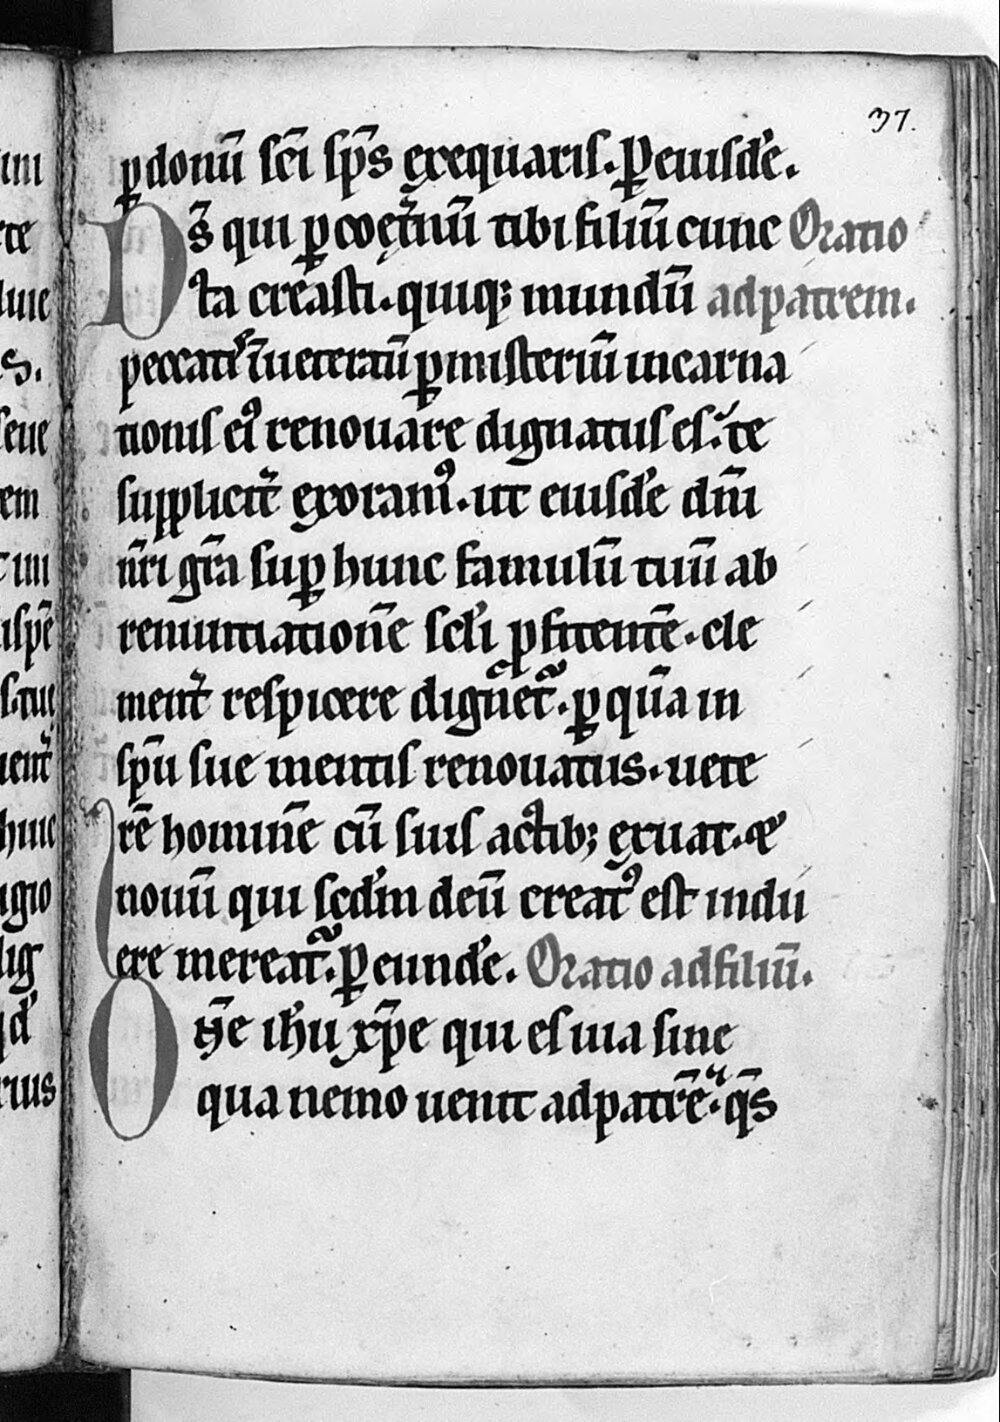 37.
ꝑ donū sc̄i sp̄s exequaris. Ꝑ eiusdē.
Ds̄ qui ꝑ coęt̄nū tibi filiū cunc Oratio
ta creasti. quiqꝫ mundū ad patrem.
peccatis īueteratū ꝑ misteriū incarna
tionis eiꝰ renouare dignatus es. te
supplicit̄ exoramꝰ. ut eiusdē dn̄i
nr̄i gr̄a suꝑ hunc famulū tuū ab
renuntiationē scl̄i ꝓfitentē. cle
ment̄ respicere dignet̄. ꝑ quā in
spū sue mentis renouatus. uete
rē hominē cū suis actibꝫ exuat. &
nouū qui scd̄m deū creatꝰ est indu
ere mereat̄. Ꝑ eundē. Oratio ad filiū.
Dn̄e ih̄u xp̄e qui es uia sine
qua nemo uenit ad patrē. qs̄